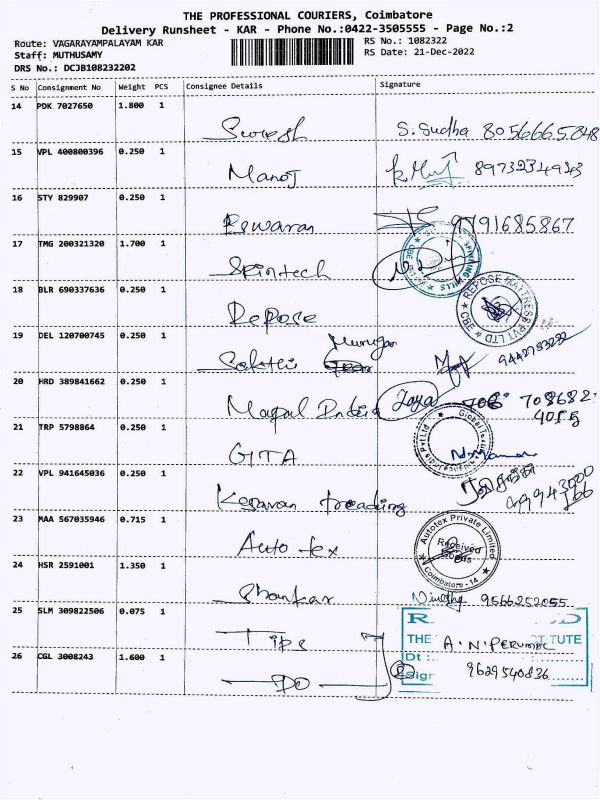 THE PROFESSIONAL COURIERS, Coimbatore
Delivery Runsheet - KAR - Phone No.:0422-3505555 - Page No.:2
Route: VAGARAYAMPALAYAM KAR
RS No.: 1082322
Staff: MUTHUSAMY
RS Date: 21-Dec-2022
DRS No.: DCJB108232202
S No Consignment No Weight PCS Consignee Details Signature
14 PDK 7027650 1.800 1
Suresh S. Sudha 8056665848
15 VPL 400800396 0.250 1
Manoj
16 STY 829907 0.250 1
Eswaran 9791685867
17 TMG 200321320 1.700 1
Spintech
SPINNING MILLS
18 BLR 690337636 0.250 1
Repose
REPOSE MATTRESS PVT LTD
CBE
19 DEL 120700745 0.250 1
Murugan
Sakthi 9442783232
20 HRD 389841662 0.250 1
Magal India Jaya 708682
4055
21 TRP 5798864 0.250 1
GITA
22 VPL 941645036 0.250 1
Kesavan treading
23 MAA 567035946 0.715 1
Auto tex
Autotex Private Limited
Received
Goods
Coimbatore - 14
24 HSR 2591001 1.350 1
Shankar 9566252055
25 SLM 309822506 0.075 1
Tips
THE A. N. PERUMAL TUTE
Dt :
26 CGL 3008243 1.600 1
DO 9629540836
Sigr